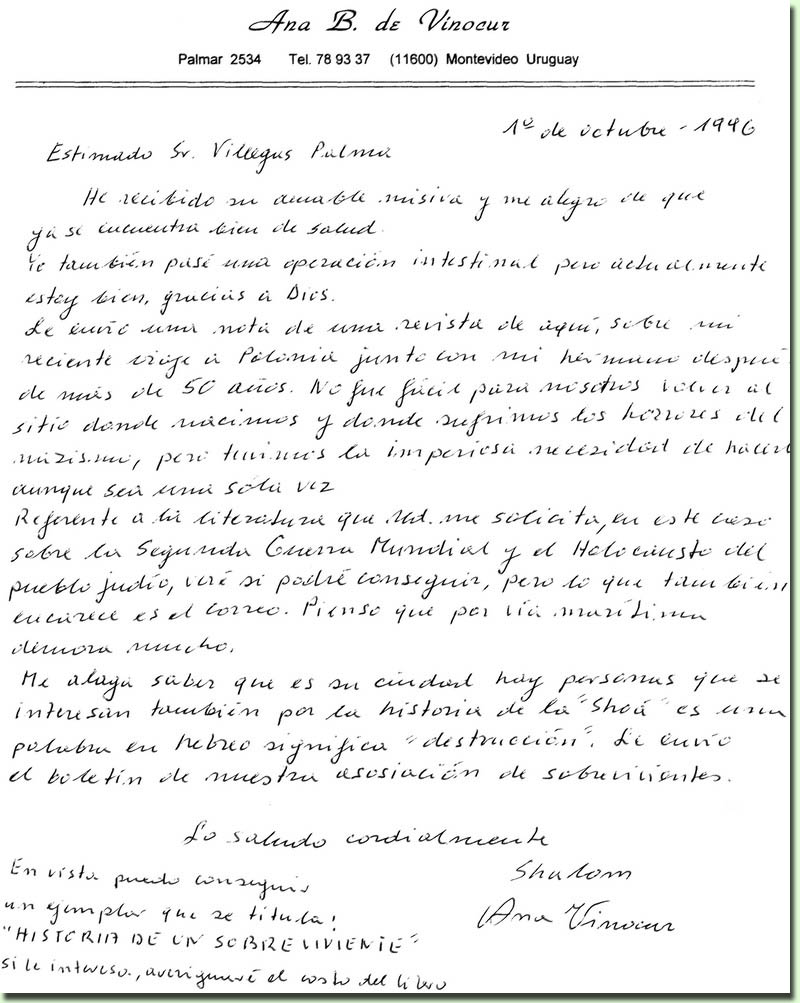 Ana B. de Vinocur
Palmar 2534 Tel. 78 93 37 (11600) Montevideo Uruguay
1º de octubre - 1996
Estimado Sr. Villegas Palma
He recibido su amable misiva y me alegro de que
ya se encuentra bien de salud.
Yo también pasé una operación intestinal pero actualmente
estoy bien, gracias a Dios.
Le envío una nota de una revista de aquí, sobre mi
reciente viaje a Polonia junto con mi hermano después
de más de 50 años. No fue fácil para nosotros volver al
sitio donde nacimos y donde sufrimos los horrores del
nazismo, pero tuvimos la imperiosa necesidad de hacerlo
aunque sea una sóla vez
Referente a la literatura que Ud. me solicita, en este caso
sobre la Segunda Guerra Mundial y el Holocausto del
pueblo judío, veré si podré conseguir, pero lo que también
encarece es el correo. Pienso que por vía marítima
demora mucho.
Me alaga saber que es su ciudad hay personas que se
interesan también por la historia de la "Shoá" es una
palabra en hebreo significa "destrucción". Le envío
el boletín de nuestra asosiación de sobrevivientes.
Lo saludo cordialmente
Shalom
Ana Vinocur
En vista puedo conseguir
un ejemplar que se titula:
"HISTORIA DE UN SOBREVIVIENTE"
si le interesa, averiguaré el costo del libro